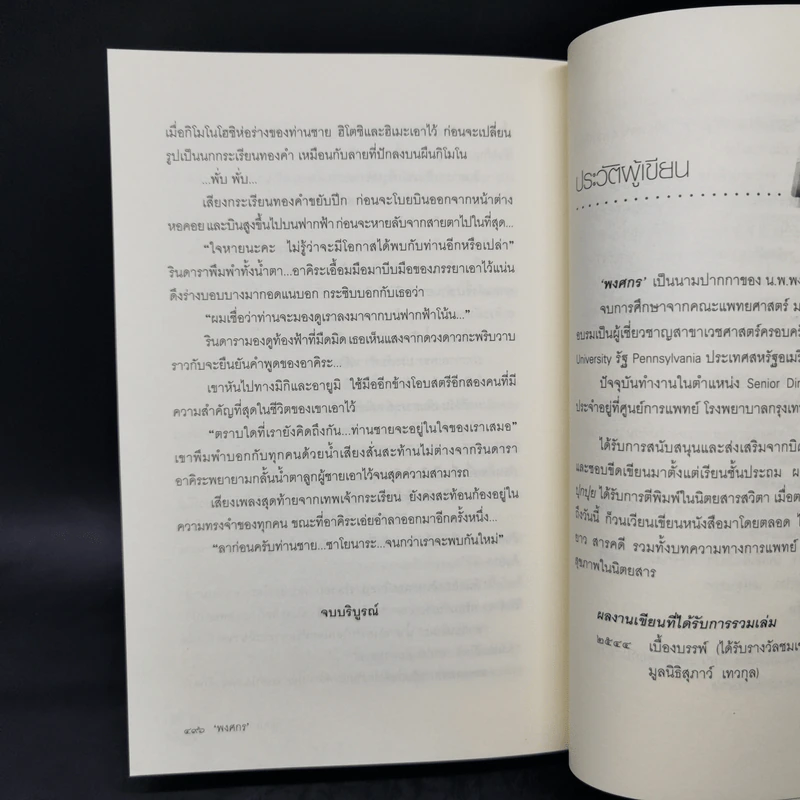 เมื่อกิโมโนโฮชิห่อร่างของท่านชาย ฮิโตชิและฮิเมะเอาไว้ ก่อนจะเปลี่ยน
รูปเป็นนกกระเรียนทองคำ เหมือนกับลายที่ปักลงบนผืนกิโมโน
...พั่บ พั่บ...
เสียงกระเรียนทองคำขยับปีก ก่อนจะโบยบินออกจากหน้าต่าง
หอคอย และบินสูงขึ้นไปบนฟากฟ้า ก่อนจะหายลับจากสายตาไปในที่สุด...
“ใจหายนะคะ ไม่รู้ว่าจะมีโอกาสได้พบกับท่านอีกหรือเปล่า”
รินดาราพึมพำทั้งน้ำตา...อาคิระเอื้อมมือมาบีบมือของภรรยาเอาไว้แน่น
ดึงร่างบอบบางมากอดแนบอก กระซิบบอกกับเธอว่า
“ผมเชื่อว่าท่านจะมองดูเราลงมาจากบนฟากฟ้าโน้น...”
รินดารามองดูท้องฟ้าที่มืดมิด เธอเห็นแสงจากดวงดาวกะพริบวาบ
ราวกับจะยืนยันคำพูดของอาคิระ...
เขาหันไปทางมิกิและอายูมิ ใช้มืออีกข้างโอบสตรีอีกสองคนที่มี
ความสำคัญที่สุดในชีวิตของเขาเอาไว้
“ตราบใดที่เรายังคิดถึงกัน...ท่านชายจะอยู่ในใจของเราเสมอ”
เขาพึมพำบอกกับทุกคนด้วยน้ำเสียงสั่นสะท้านไม่ต่างจากรินดารา
อาคิระพยายามกลั้นน้ำตาลูกผู้ชายเอาไว้จนสุดความสามารถ
เสียงเพลงสุดท้ายจากเทพเจ้ากระเรียน ยังคงสะท้อนก้องอยู่ใน
ความทรงจำของทุกคน ขณะที่อาคิระเอ่ยอำลาออกมาอีกครั้งหนึ่ง...
“ลาก่อนครับท่านชาย...ซาโยนาระ...จนกว่าเราจะพบกันใหม่”
จบบริบูรณ์
๔๙๖ ‘พงศกร’
ประวัติผู้เขียน
‘พงศกร’ เป็นนามปากกาของ น.พ.พง
จบการศึกษาจากคณะแพทยศาสตร์ ม
อบรมเป็นผู้เชี่ยวชาญสาขาเวชศาสตร์ครอบครั
University รัฐ Pennsylvania ประเทศสหรัฐอเมริ
ปัจจุบันทำงานในตำแหน่ง Senior Dir
ประจำอยู่ที่ศูนย์การแพทย์ โรงพยาบาลกรุงเทพ
ได้รับการสนับสนุนและส่งเสริมจากบิด
และชอบขีดเขียนมาตั้งแต่เรียนชั้นประถม ผ
ปุกปุย ได้รับการตีพิมพ์ในนิตยสารสวิตา เมื่อต
ถึงวันนี้ ก็วนเวียนเขียนหนังสือมาโดยตลอด ไ
ยาว สารคดี รวมทั้งบทความทางการแพทย์
สุขภาพในนิตยสาร
ผลงานเขียนที่ได้รับการรวมเล่ม
๒๕๔๔ เบื้องบรรพ์ (ได้รับรางวัลชมเช
มูลนิธิสุภาว์ เทวกุล)